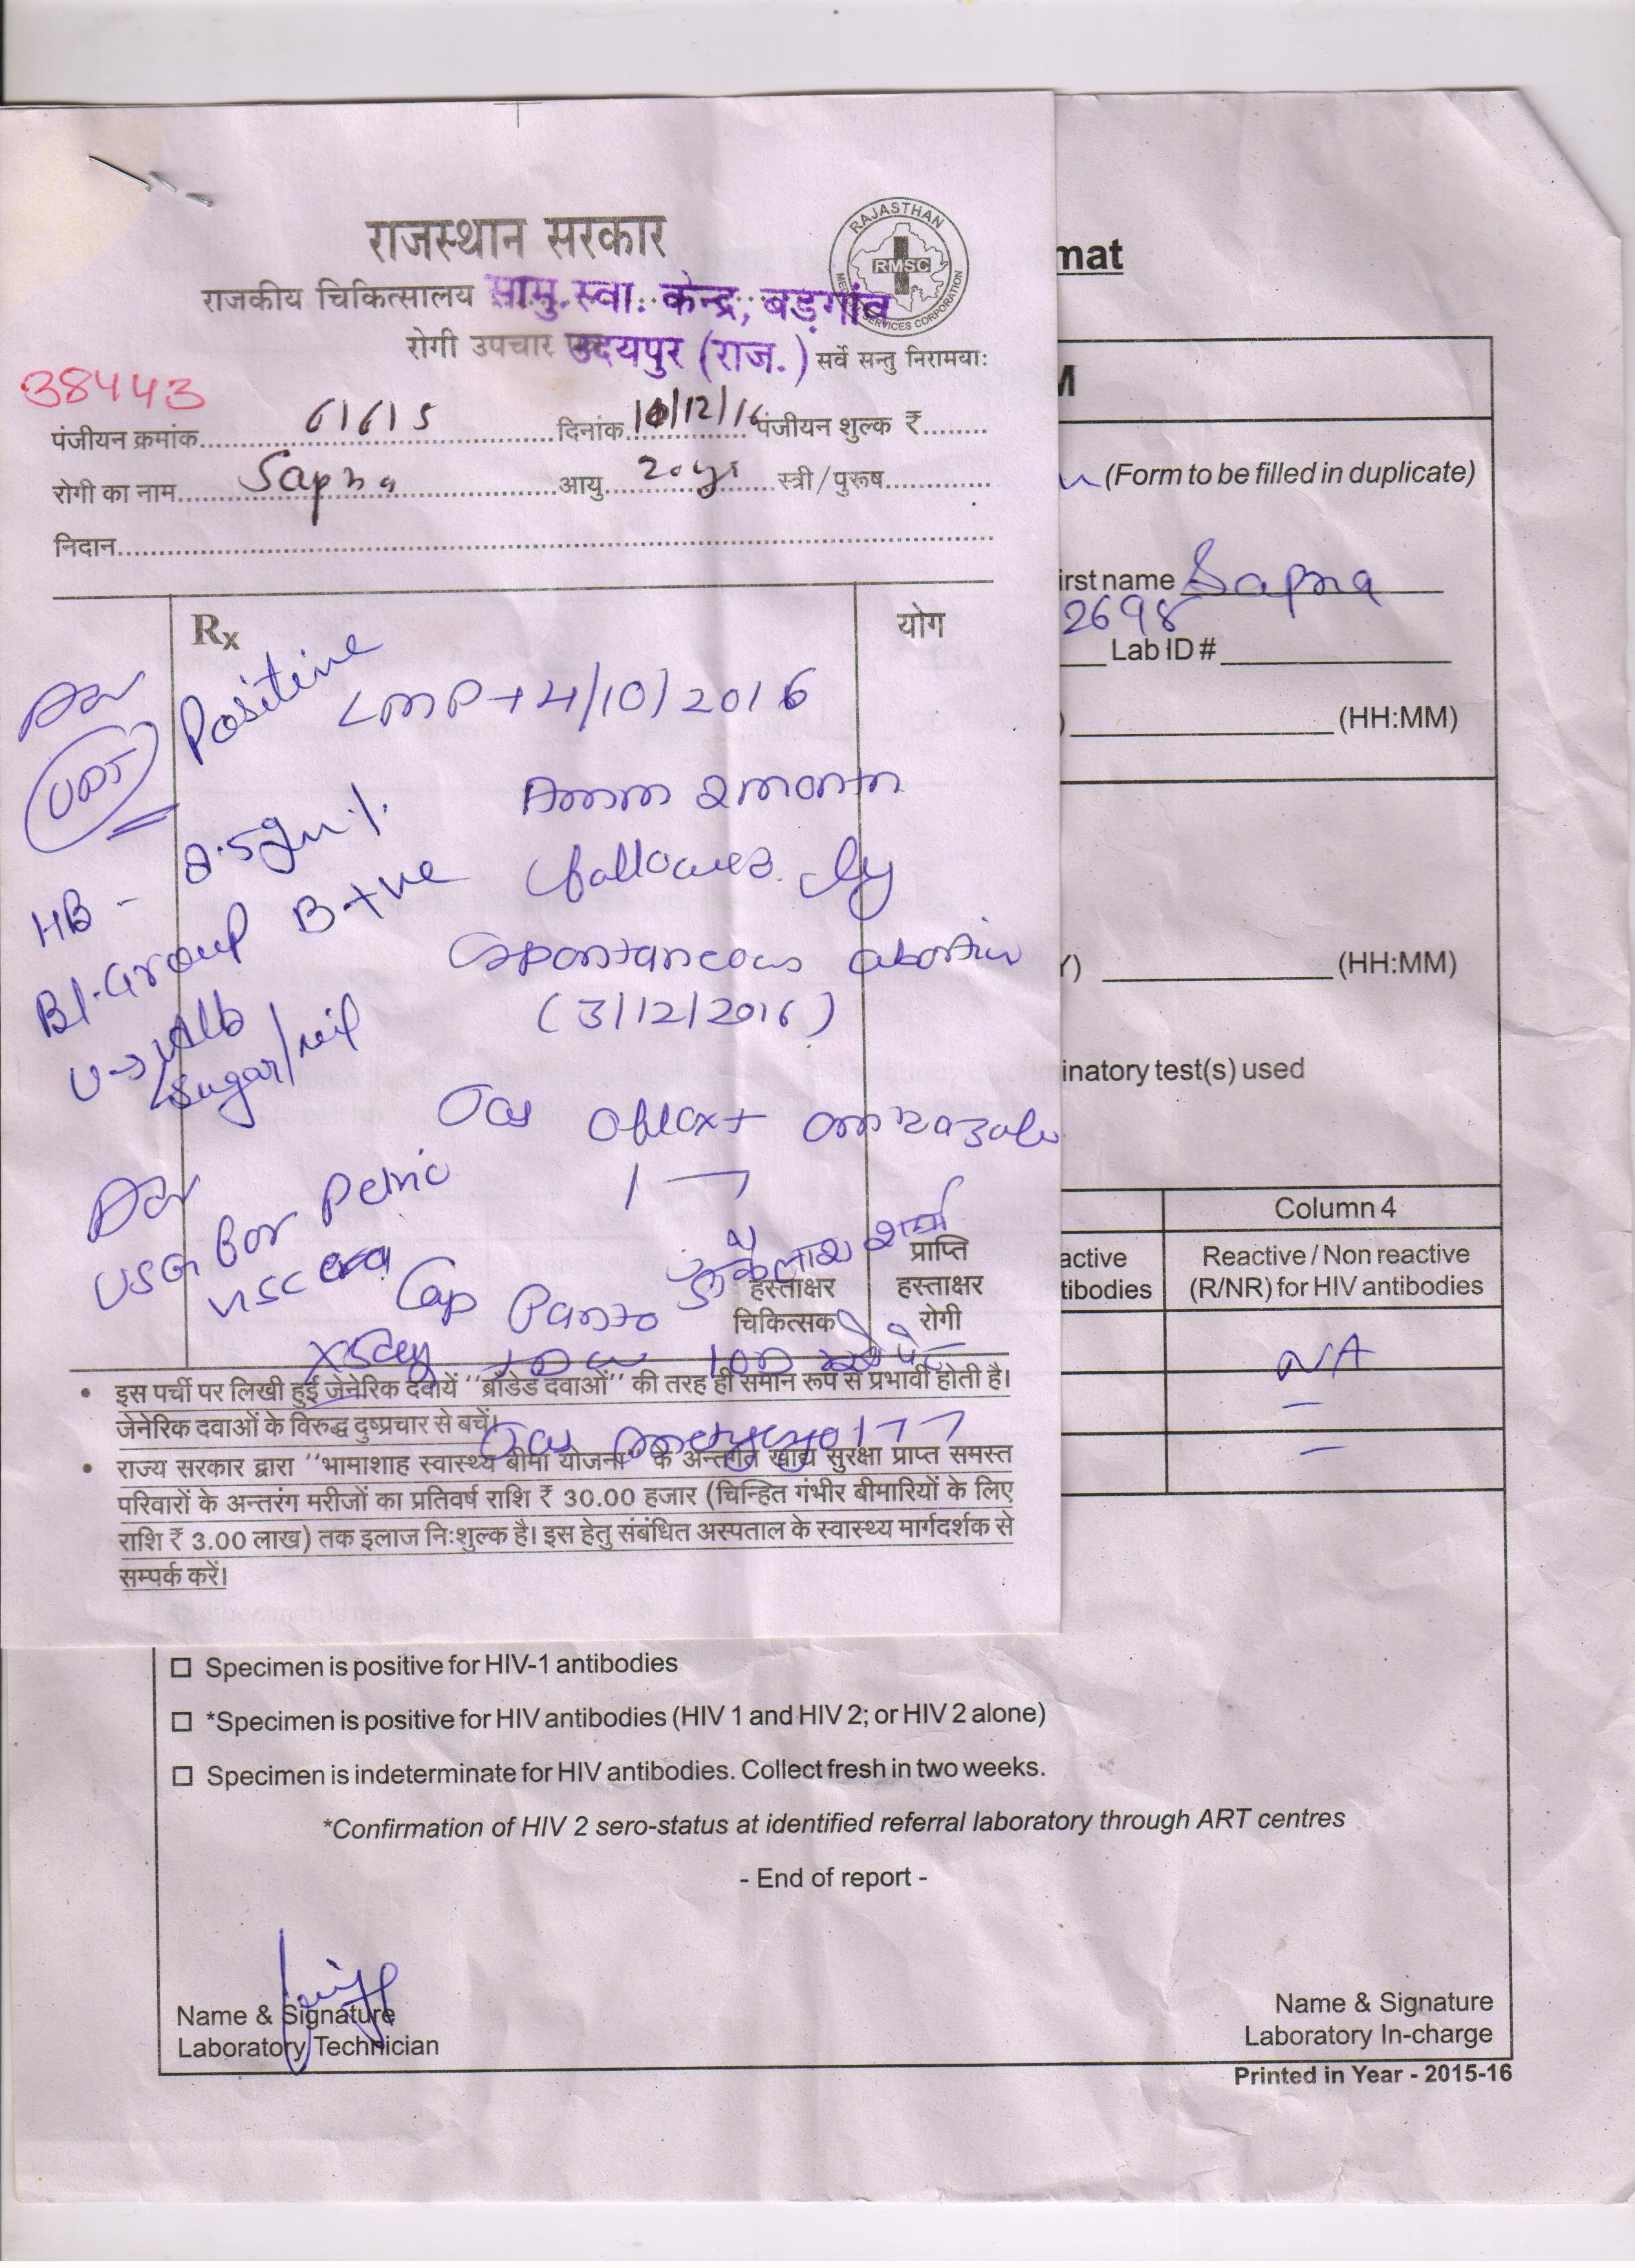 राजस्थान सरकार
RAJASTHAN
RMSC
MEDICAL SERVICES CORPORATION
राजकीय चिकित्सालय सामु. स्वा. केन्द्र, बड़गांव
रोगी उपचार उदयपुर (राज.) सर्वे सन्तु निरामयाः
38443
पंजीयन क्रमांक 61615 दिनांक 10/12/16 पंजीयन शुल्क ₹
रोगी का नाम Sapna आयु 20yr स्त्री / पुरूष
निदान
Rx
योग
Adv
UPT Positive
HB - 8.5gm%
Bl. Group B+ve
U→ Alb
Sugar/nil
Adv
USG for Pelvic
viscera
LMP → 4/10/2016
Amm 2 month
followed by
spontaneous abortion
(3/12/2016)
Oflox +
1
Cap Panto
100
कैलाश शर्मा
हस्ताक्षर
चिकित्सक
प्राप्ति
हस्ताक्षर
रोगी
• इस पर्ची पर लिखी हुई जेनेरिक दवायें ''ब्रांडेड दवाओं'' की तरह ही समान रूप से प्रभावी होती है।
जेनेरिक दवाओं के विरुद्ध दुष्प्रचार से बचें।
• राज्य सरकार द्वारा ''भामाशाह स्वास्थ्य बीमा योजना'' के अन्तर्गत खाद्य सुरक्षा प्राप्त समस्त
परिवारों के अन्तरंग मरीजों का प्रतिवर्ष राशि ₹ 30.00 हजार (चिन्हित गंभीर बीमारियों के लिए
राशि ₹ 3.00 लाख) तक इलाज नि:शुल्क है। इस हेतु संबंधित अस्पताल के स्वास्थ्य मार्गदर्शक से
सम्पर्क करें।
mat
M
(Form to be filled in duplicate)
irst name Sapna
2698
Lab ID #
(HH:MM)
(HH:MM)
inatory test(s) used
Column 4
active
tibodies
Reactive / Non reactive
(R/NR) for HIV antibodies
NA
–
–
☐ Specimen is positive for HIV-1 antibodies
☐ *Specimen is positive for HIV antibodies (HIV 1 and HIV 2; or HIV 2 alone)
☐ Specimen is indeterminate for HIV antibodies. Collect fresh in two weeks.
*Confirmation of HIV 2 sero-status at identified referral laboratory through ART centres
- End of report -
Name & Signature
Laboratory Technician
Name & Signature
Laboratory In-charge
Printed in Year - 2015-16